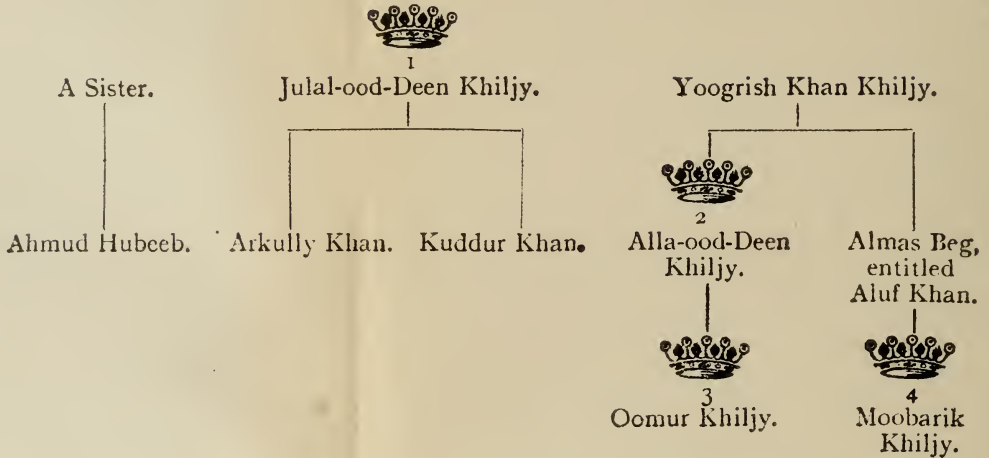 1
A Sister.
Julal-ood-Deen Khiljy.
Yoogrish Khan Khiljy.
2
Ahmud Hubeeb.
Arkully Khan.
Kuddur Khan.
Alla-ood-Deen
Khiljy.
Almas Beg,
entitled
Aluf Khan.
3
Oomur Khiljy.
4
Moobarik
Khiljy.